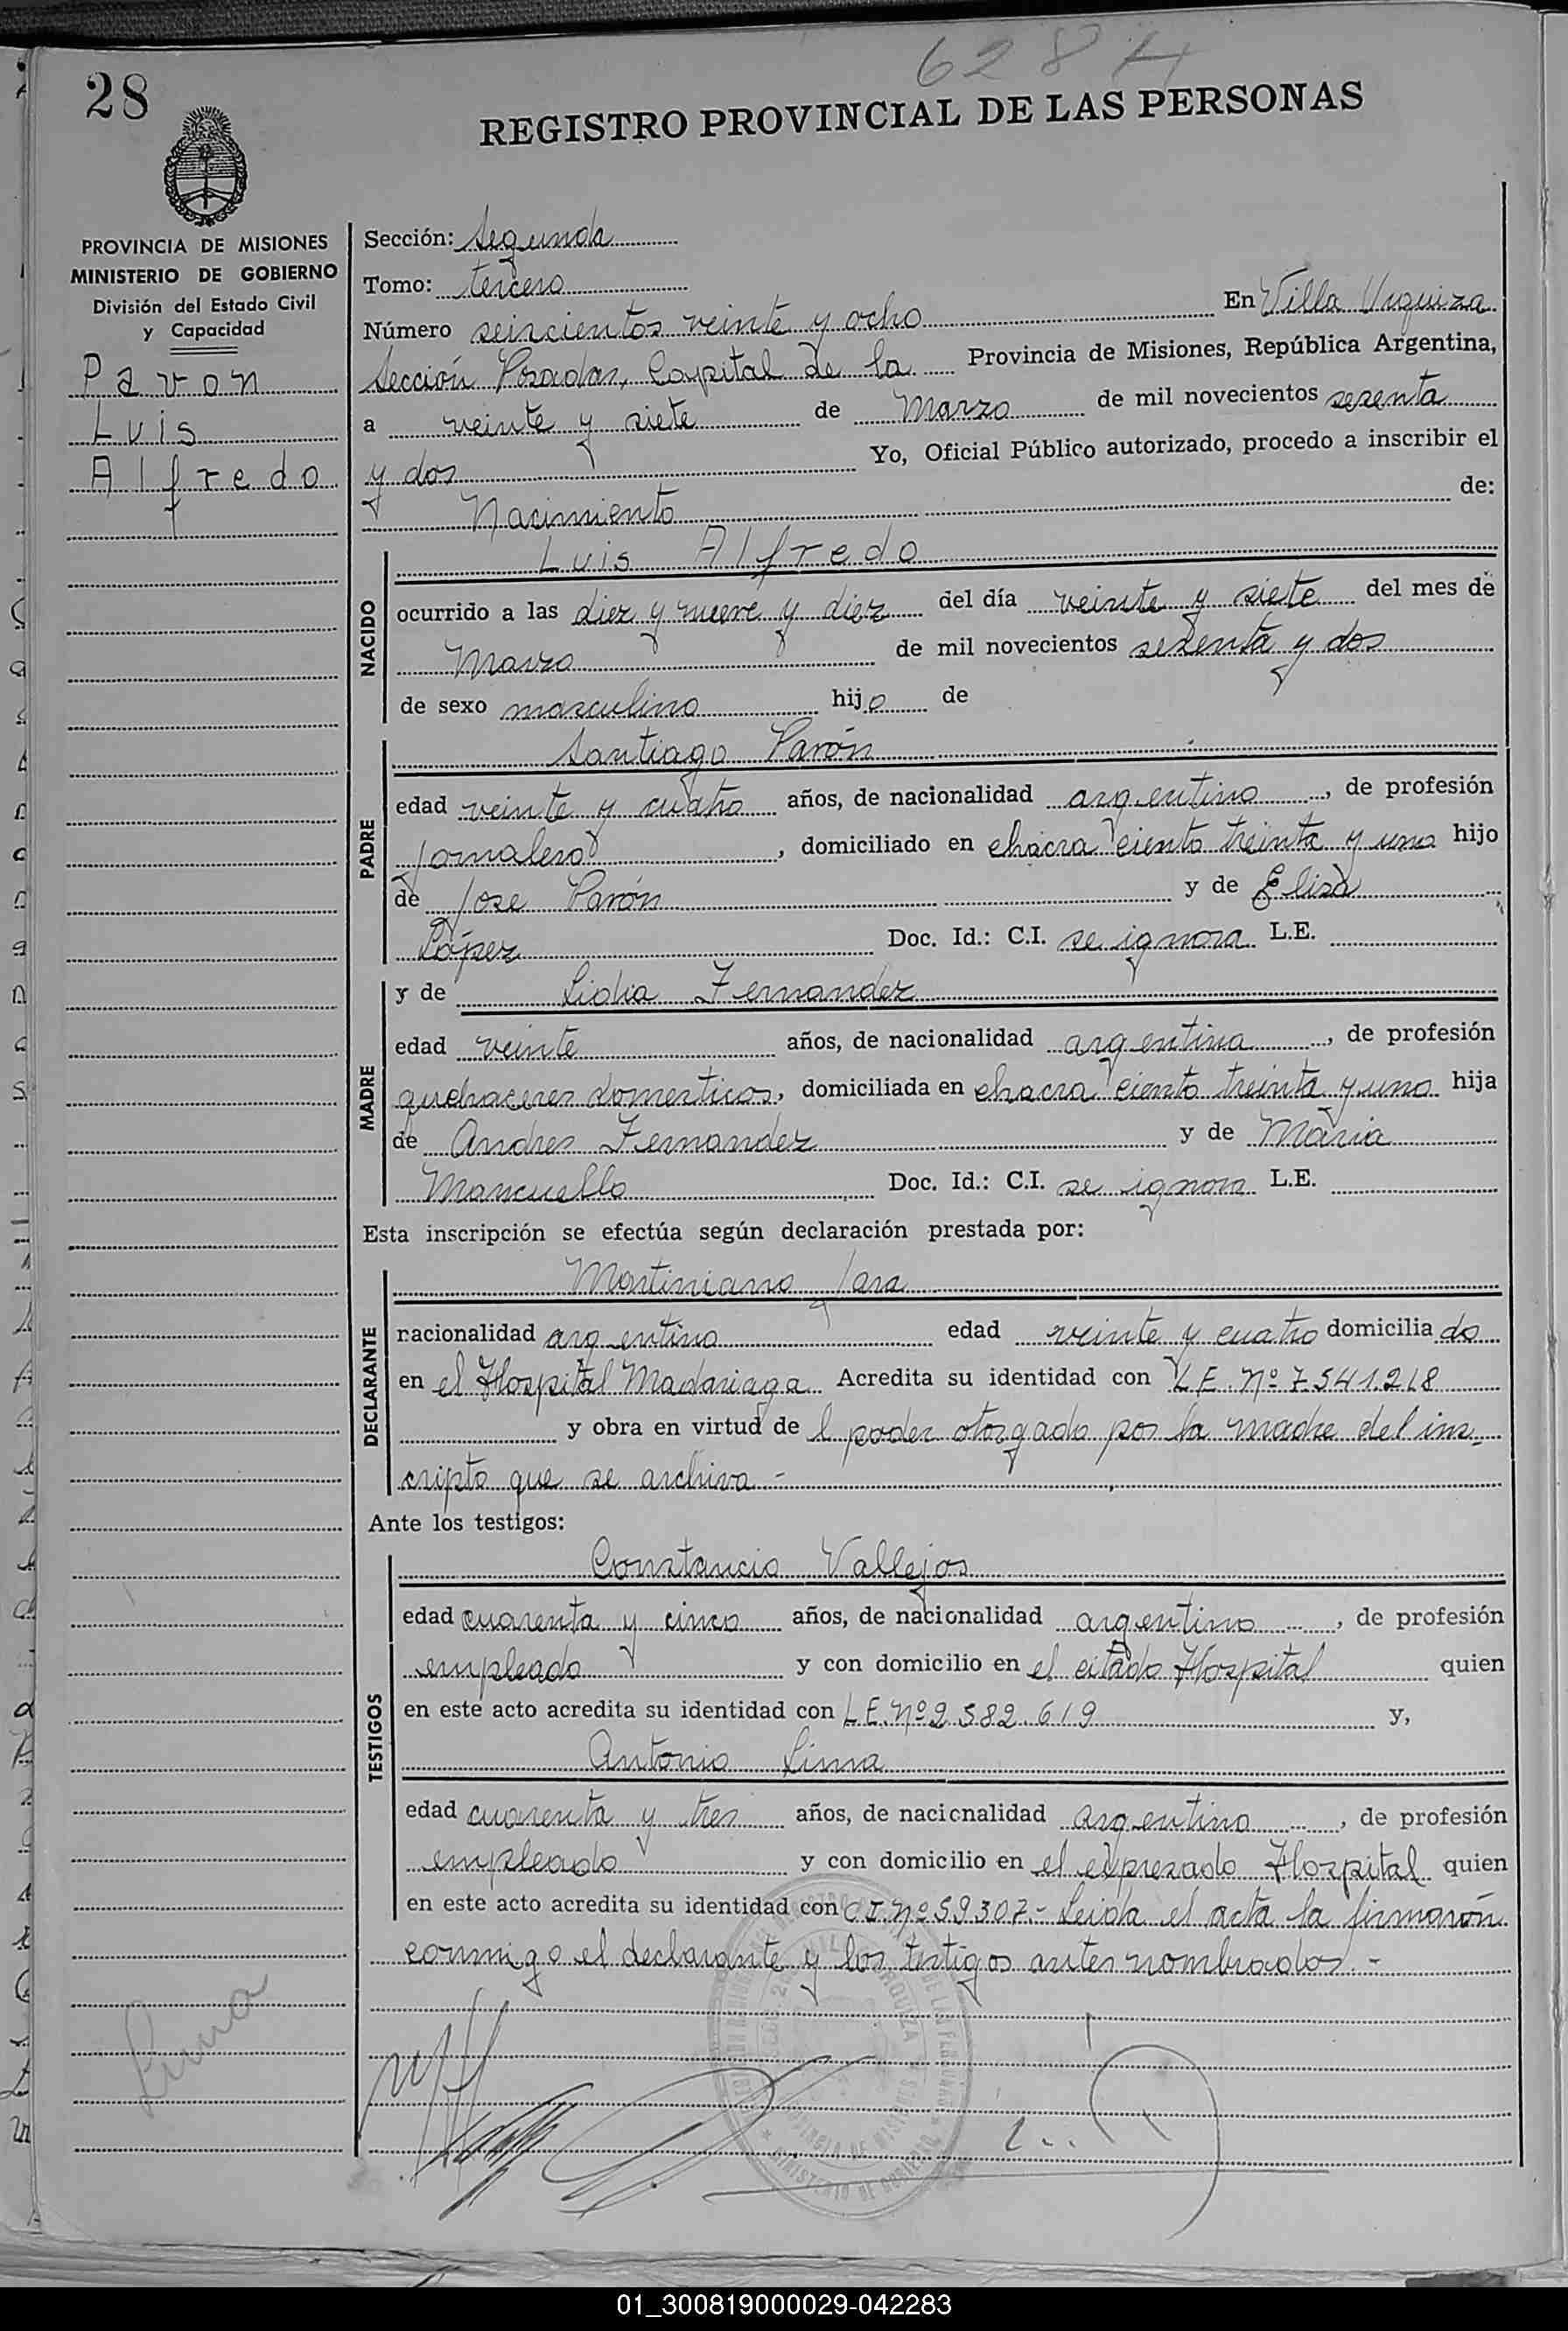 628 H
28
REGISTRO PROVINCIAL DE LAS PERSONAS
PROVINCIA DE MISIONES
MINISTERIO DE GOBIERNO
División del Estado Civil
y Capacidad
Pavon
Luis
Alfredo
Sección: Segunda
Tomo: tercero
Número seiscientos veinte y ocho En Villa Urquiza
Sección Posadas, Capital de la Provincia de Misiones, República Argentina,
a veinte y siete de Marzo de mil novecientos sesenta
y dos Yo, Oficial Público autorizado, procedo a inscribir el
Nacimiento de:
NACIDO
Luis Alfredo
ocurrido a las diez y nueve y diez del día veinte y siete del mes de
Marzo de mil novecientos sesenta y dos
de sexo masculino hijo de
PADRE
Santiago Pavón
edad veinte y cuatro años, de nacionalidad argentino, de profesión
jornalero, domiciliado en chacra ciento treinta y uno hijo
de Jose Pavón y de Elisa
López Doc. Id.: C.I. se ignora L.E.
MADRE
y de Lidia Fernandez
edad veinte años, de nacionalidad argentina, de profesión
quehaceres domesticos, domiciliada en chacra ciento treinta y uno hija
de Andres Fernandez y de Maria
Mancuello Doc. Id.: C.I. se ignora L.E.
Esta inscripción se efectúa según declaración prestada por:
DECLARANTE
Martiniano Jara
nacionalidad argentino edad veinte y cuatro domiciliado
en el Hospital Madariaga Acredita su identidad con L.E. Nº 7.541.218
y obra en virtud del poder otorgado por la madre del ins-
cripto que se archiva.-
Ante los testigos:
TESTIGOS
Constancio Vallejos
edad cuarenta y cinco años, de nacionalidad argentino, de profesión
empleado y con domicilio en el citado Hospital quien
en este acto acredita su identidad con L.E. Nº 2.582.619 y,
Antonio Lima
edad cuarenta y tres años, de nacionalidad argentino, de profesión
empleado y con domicilio en el expresado Hospital quien
en este acto acredita su identidad con C.I. Nº 59307.- Leida el acta la firmarón
conmigo el declarante y los testigos antes nombrados.-
01_300819000029-042283